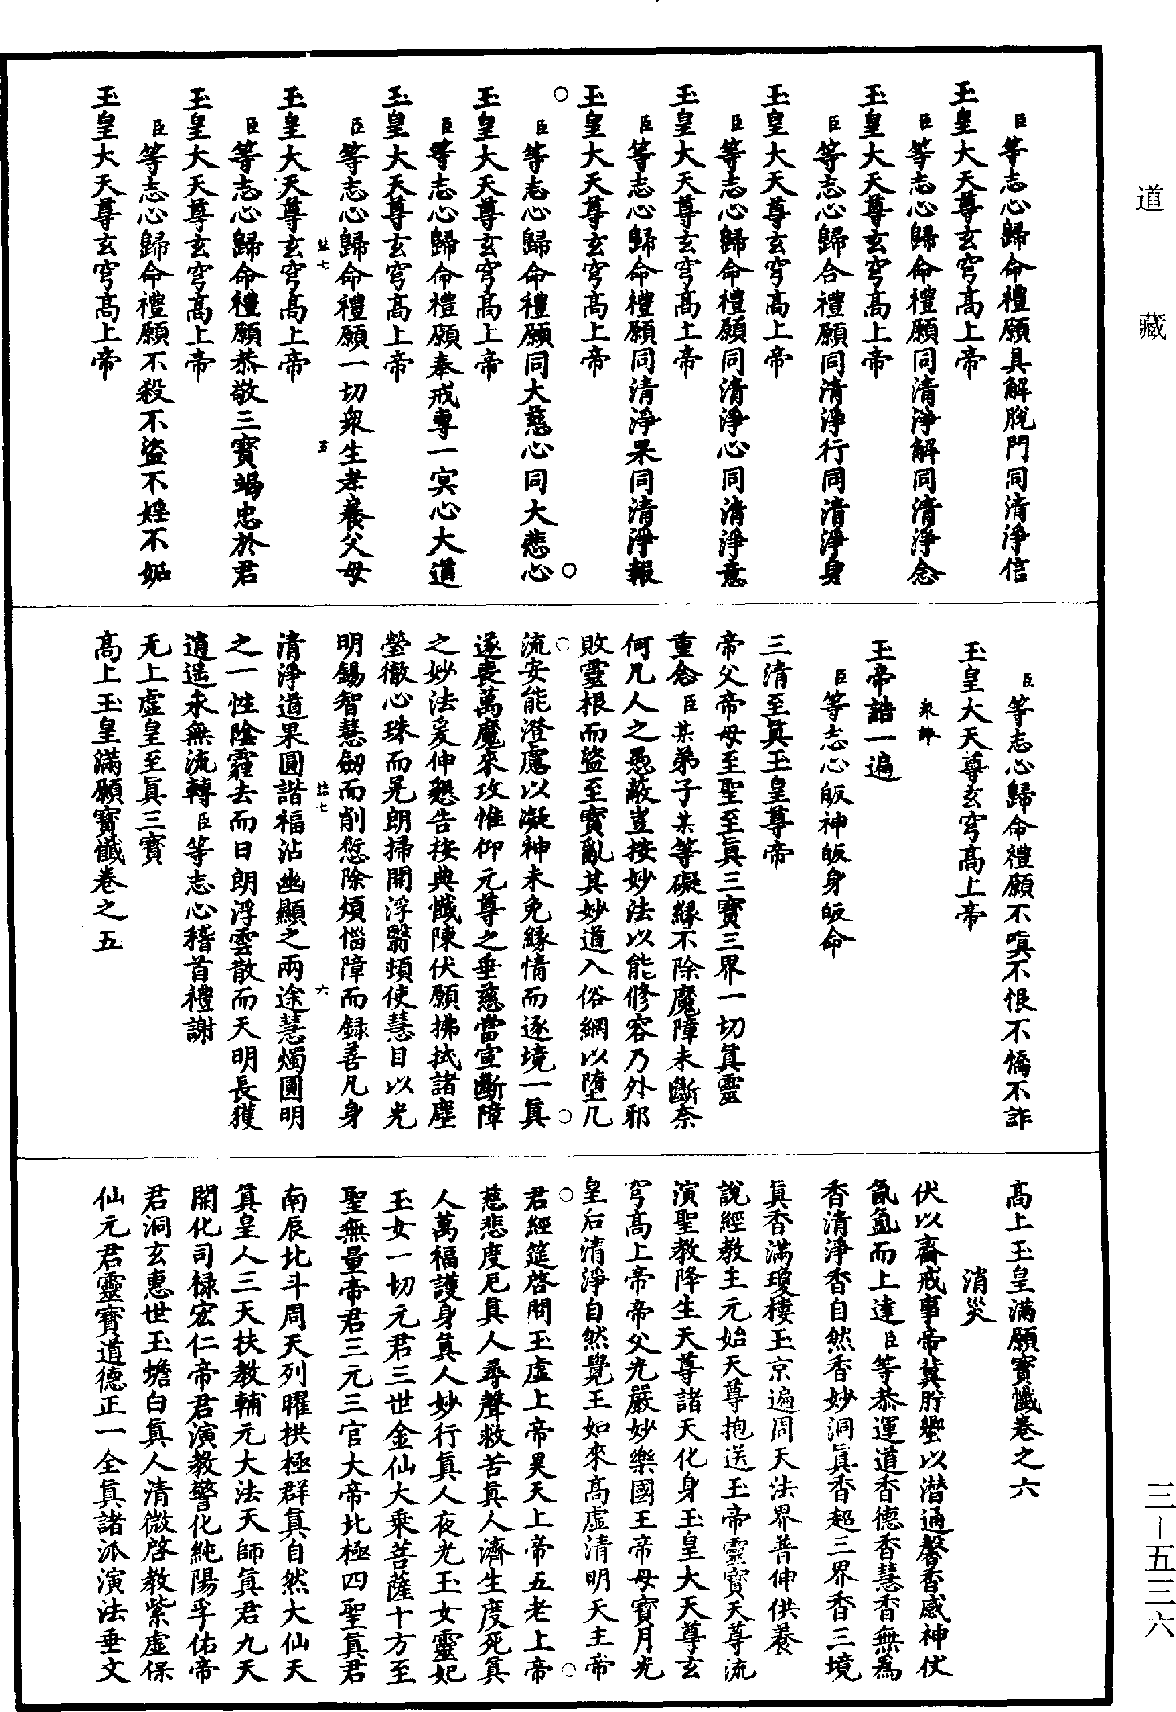 道藏
臣等志心歸命禮願具解脫門同清淨信
玉皇大天尊玄穹高上帝
臣等志心歸命禮願同清淨解同清淨念
玉皇大天尊玄穹高上帝
臣等志心歸合禮願同清淨行同清淨身
玉皇大天尊玄穹高上帝
臣等志心歸命禮願同清淨心同清淨意
玉皇大天尊玄穹高上帝
臣等志心歸命禮願同清淨果同清淨報
玉皇大天尊玄穹高上帝
臣等志心歸命禮願同大慈心同大悲心
玉皇大天尊玄穹高上帝
臣等志心歸命禮願奉戒專一冥心大道
玉皇大天尊玄穹高上帝
臣等志心歸命禮願一切衆生孝養父母
玉皇大天尊玄穹高上帝
臣等志心歸命禮願恭敬三寶竭忠於君
玉皇大天尊玄穹高上帝
臣等志心歸命禮願不殺不盜不婬不妬
玉皇大天尊玄穹高上帝
臣等志心歸命禮願不嗔不恨不憍不詐
玉皇大天尊玄穹高上帝
玉帝誥一遍
臣等志心皈神皈身皈命
三清至真玉皇尊帝
帝父帝母至聖至真三寶三界一切真靈
重念臣某弟子某等礙緣不除魔障未斷奈
何凡人之愚蔽豈按妙法以能修容乃外邪
敗靈根而盜至寶亂其妙道入俗網以墮凡
流安能澄慮以凝神未免緣情而逐境一真
遂喪萬魔來攻惟仰元尊之垂慈當宣斷障
之妙法爰伸懇告按典懺陳伏願拂拭諸塵
瑩徹心珠而晃朗掃開浮翳頓使慧目以光
明錫智慧劒而削愆除煩惱障而録善凡身
清淨道果圓諧福沾幽顯之兩途慧燭圓明
之一性陰霾去而日朗浮雲散而天明長獲
逍遙永無流轉臣等志心稽首禮謝
无上虛皇至真三寶
高上玉皇滿願寶懺卷之五
高上玉皇滿願寶懺卷之六
消災
伏以齋戒事帝冀肸蠁以潛通馨香感神仗
氤氳而上達臣等恭運道香德香慧香無爲
香清淨香自然香妙洞真香超三界香三境
真香滿瓊樓玉京遍周天法界普伸供養
說經教主元始天尊抱送玉帝靈寶天尊流
演聖教降生天尊諸天化身玉皇大天尊玄
穹高上帝帝父光嚴妙樂國王帝母寶月光
皇后清淨自然覺王如來高虛清明天主帝
君經筵啓問玉虛上帝昊天上帝五老上帝
慈悲度厄真人尋聲救苦真人濟生度死真
人萬福護身真人妙行真人夜光玉女靈妃
玉女一切元君三世金仙大乘菩薩十方至
聖無量帝君三元三官大帝北極四聖真君
南辰北斗周天列曜拱極群真自然大仙天
真皇人三天扶教輔元大法天師真君九天
開化司祿宏仁帝君演教警化純陽孚佑帝
君洞玄惠世玉蟾白真人清微啓教紫虛保
仙元君靈寶道德正一全真諸派演法垂文
三-五三六